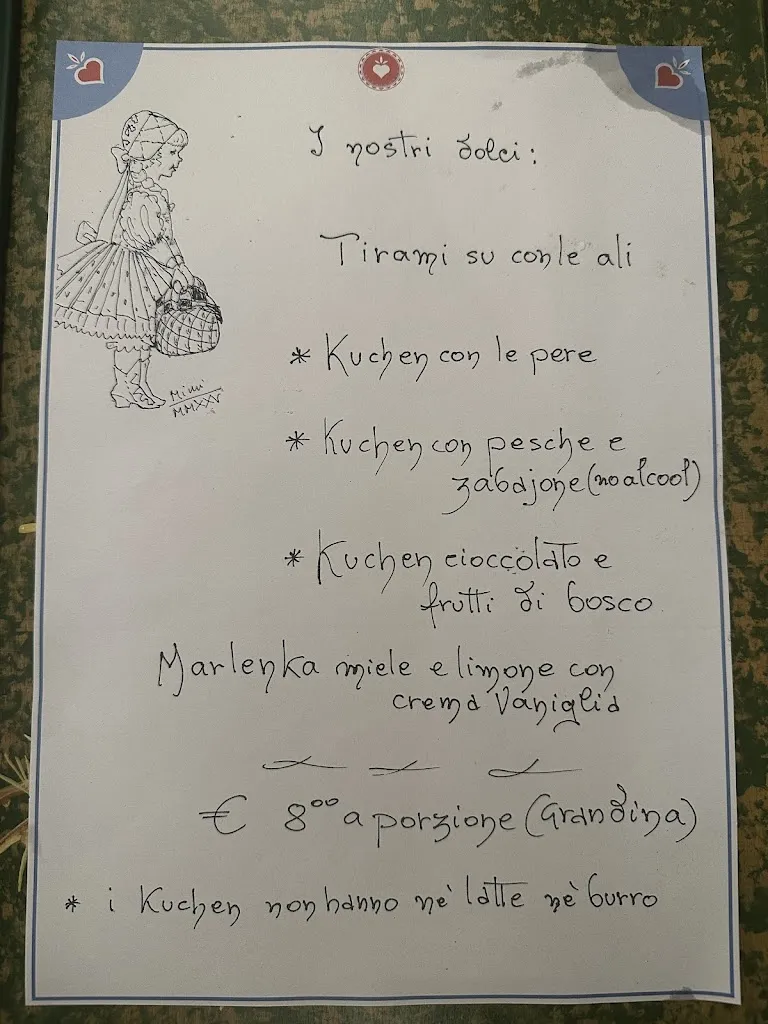 I nostri dolci:
Tirami su con le ali
* Kuchen con le pere
* Kuchen con pesche e
zabajone (no alcool)
* Kuchen cioccolato e
frutti di bosco
Marlenka miele e limone con
crema Vaniglia
€ 8°° a porzione (Grandina)
* i Kuchen non hanno nè latte nè burro
Mimì
MMXXV